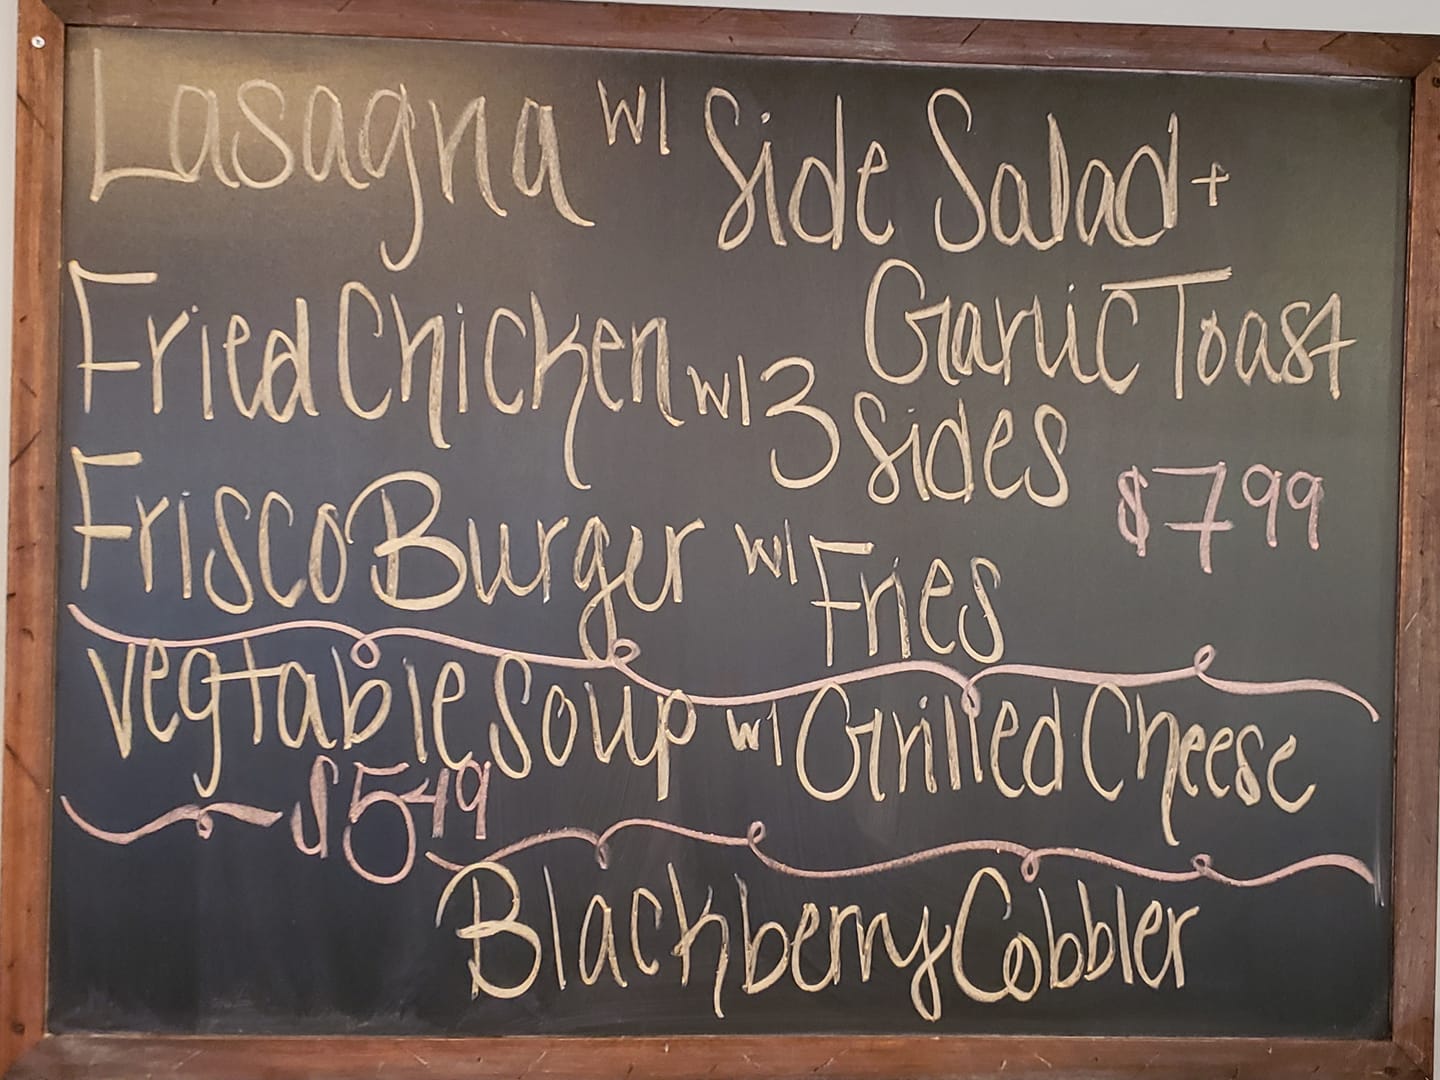 Lasagna w/ Side Salad +
Garlic Toast
Fried Chicken w/ 3 Sides
$7.99
Frisco Burger w/ Fries
Vegtable Soup w/ Grilled Cheese
$5.49
Blackberry Cobbler